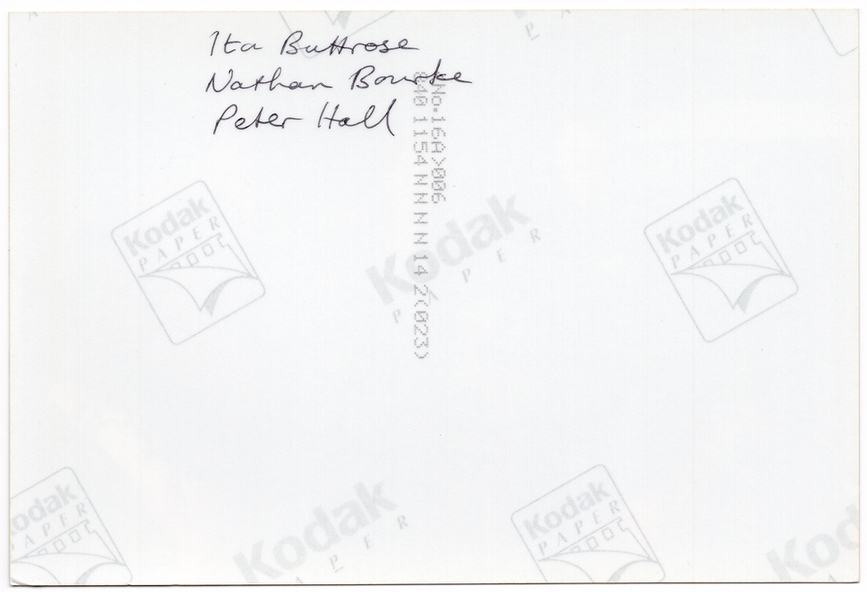 Ita Buttrose
Nathan Bourke
Peter Hall
No.16A>006
840 1154 N N N N 14 2(023)
Kodak
PAPER
Kodak
PAPER
Kodak
PAPER
Kodak
PAPER
Kodak
PAPER
Kodak
PAPER